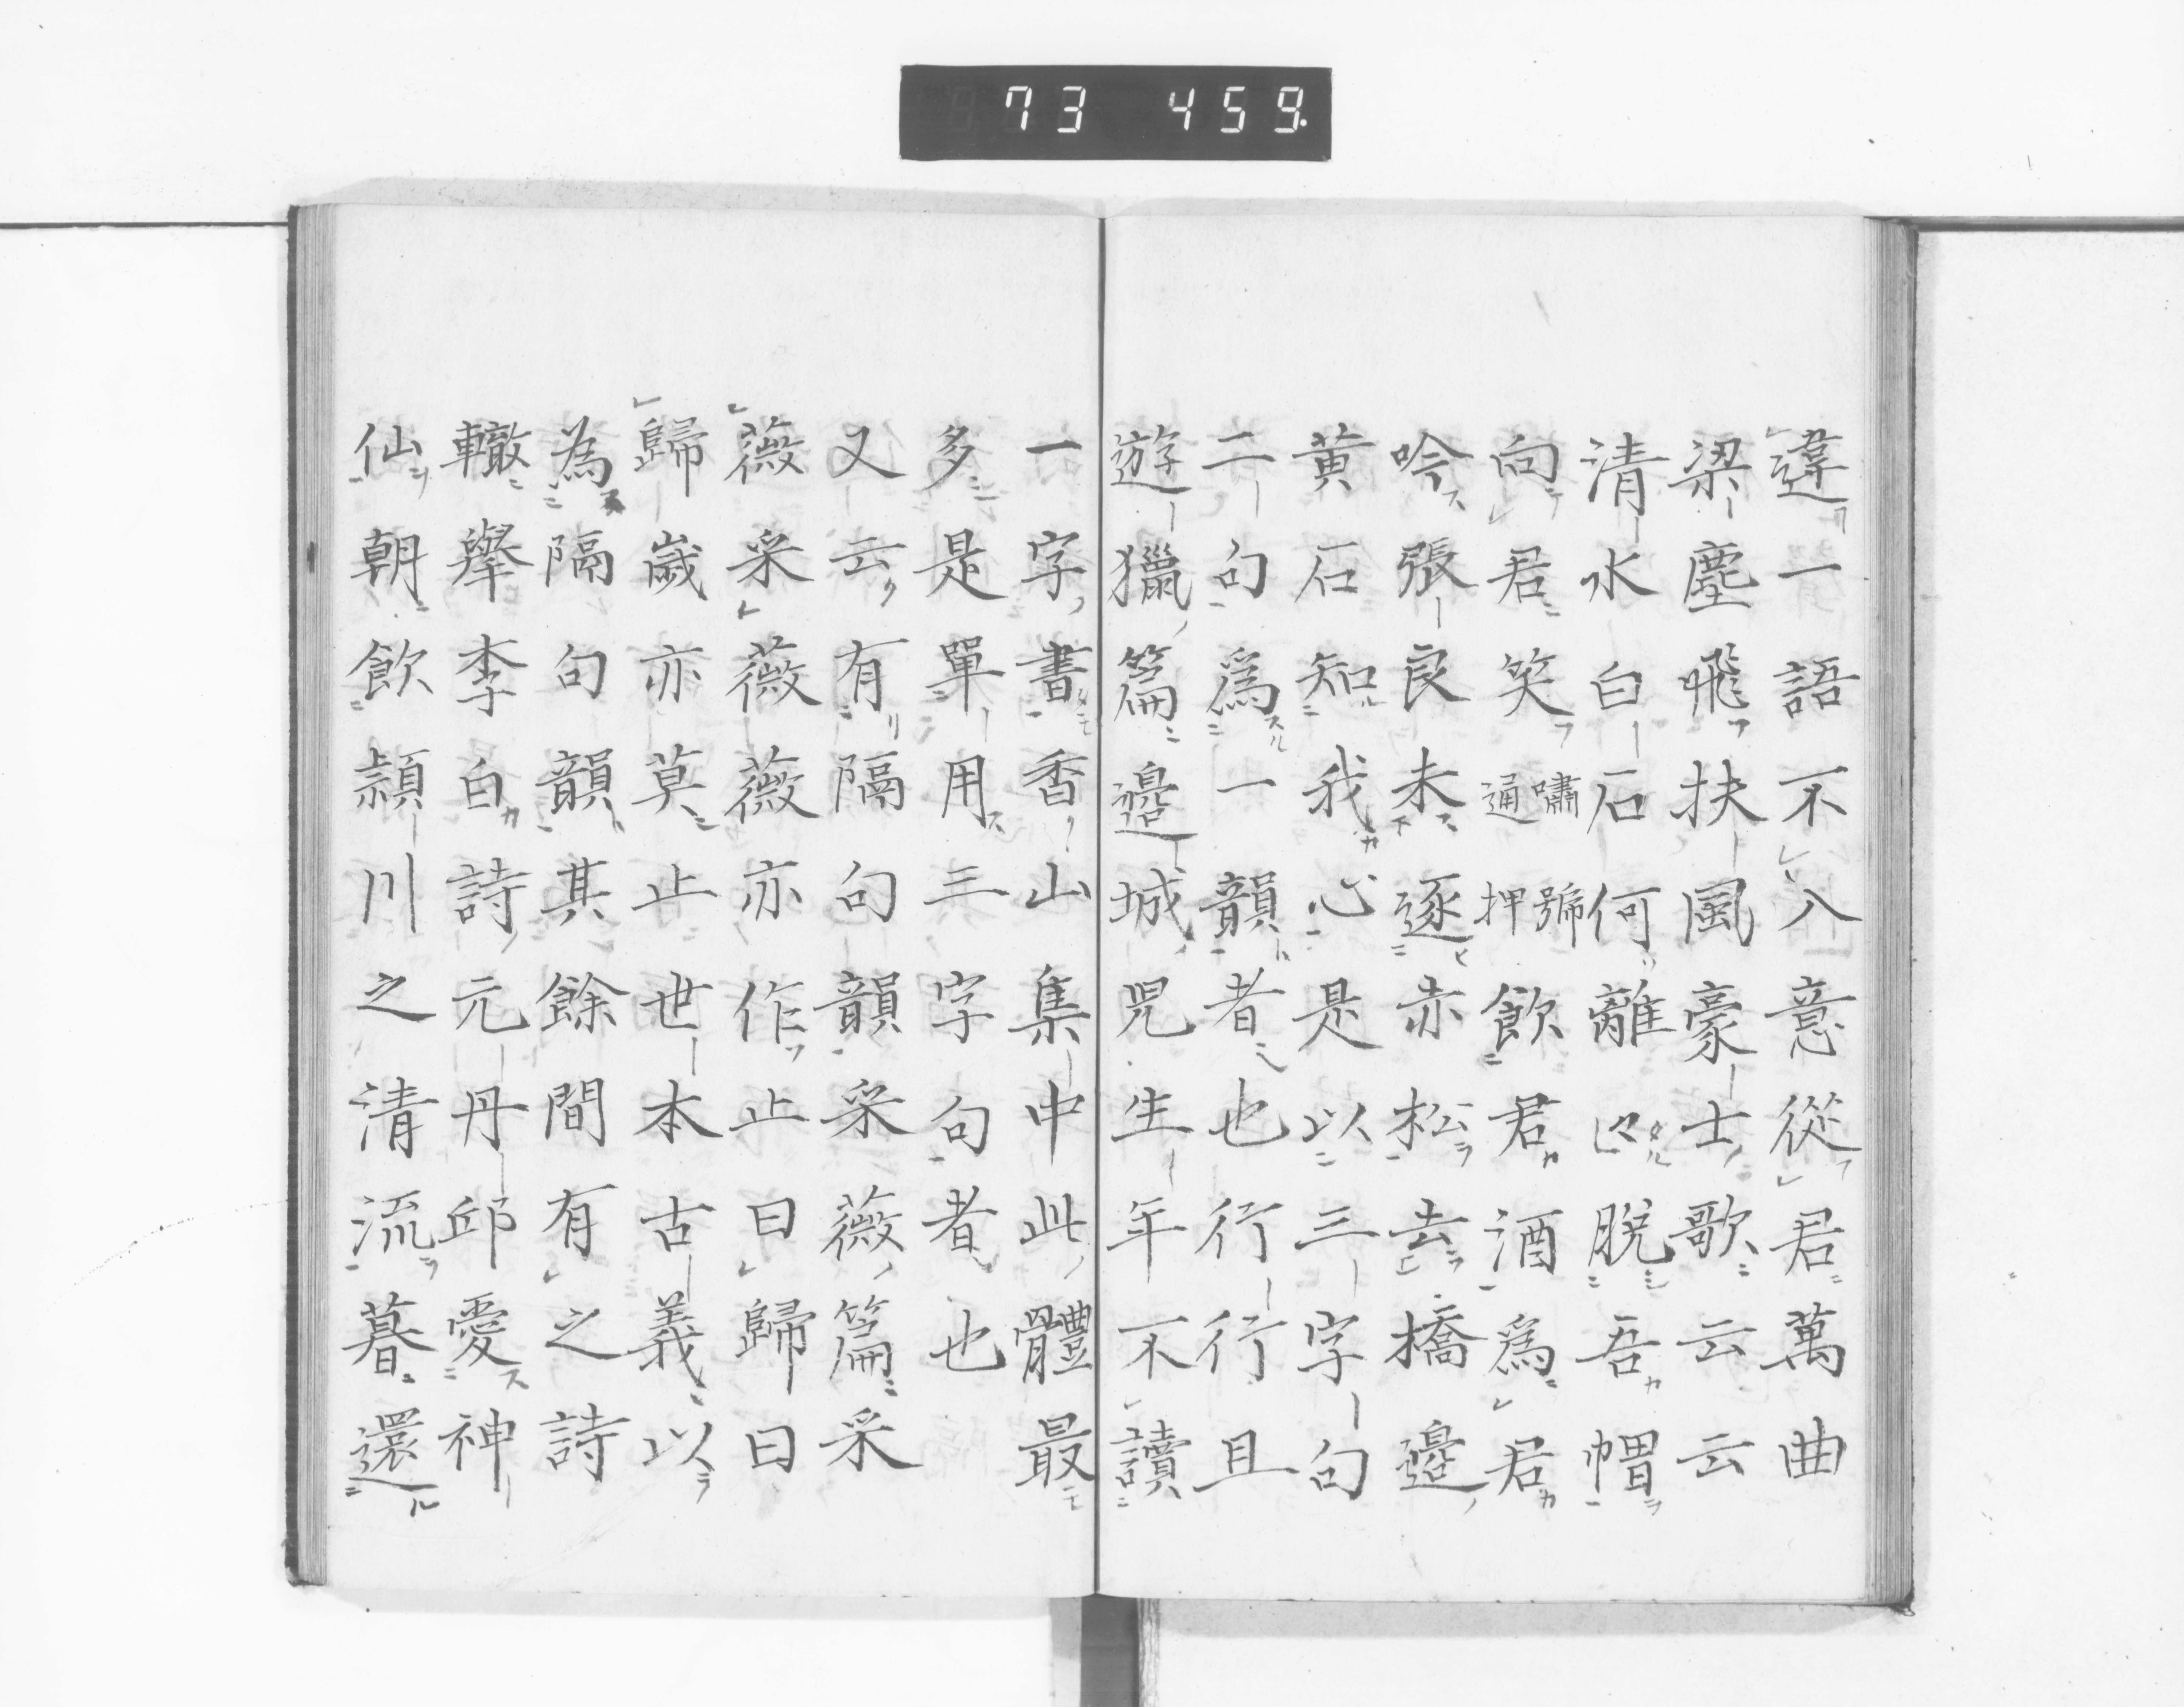 73 459.
違一語不入意從君萬曲
梁塵飛扶風豪士歌云云
清水白石何離々脫吾帽
向君笑嘯通號押飲君酒爲君
吟張良未逐赤松去橋邊
黄石知我心是以三字句
二句爲一韻者也行行且
遊獵篇邊城兒生年不讀
一字書香山集中此體最
多是單用三字句者也
又云有隔句韻采薇篇采
薇采薇薇亦作止曰歸曰
歸歲亦莫止世本古義以
為隔句韻其餘間有之詩
轍舉李白詩元丹邱愛神
仙朝飲潁川之清流暮還